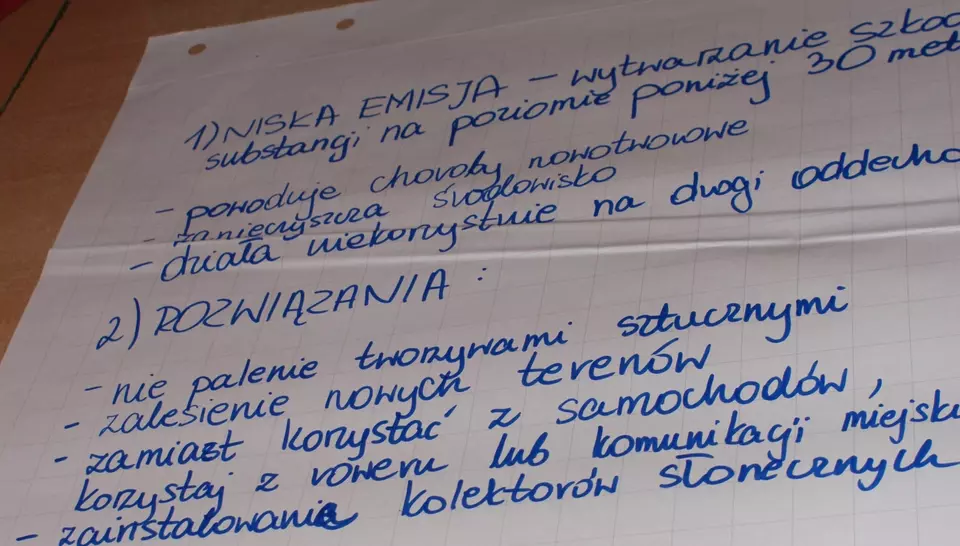 1) NISKA EMISJA – wytwarzanie szkod
substancji na poziomie poniżej 30 met
- powoduje choroby nowotworowe
- zanieczyszcza środowisko
- działa niekorzystnie na drogi oddecho
2) ROZWIĄZANIA :
- nie palenie tworzywami sztucznymi
- zalesienie nowych terenów
- zamiast korzystać z samochodów,
korzystaj z roweru lub komunikacji miejsk
- zainstalowanie kolektorów słonecznych